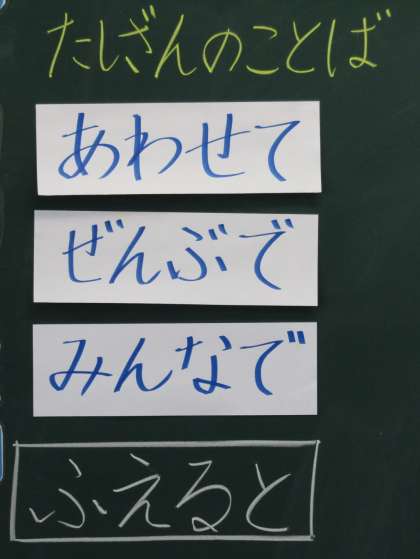 たしざんのことば
あわせて
ぜんぶで
みんなで
ふえると